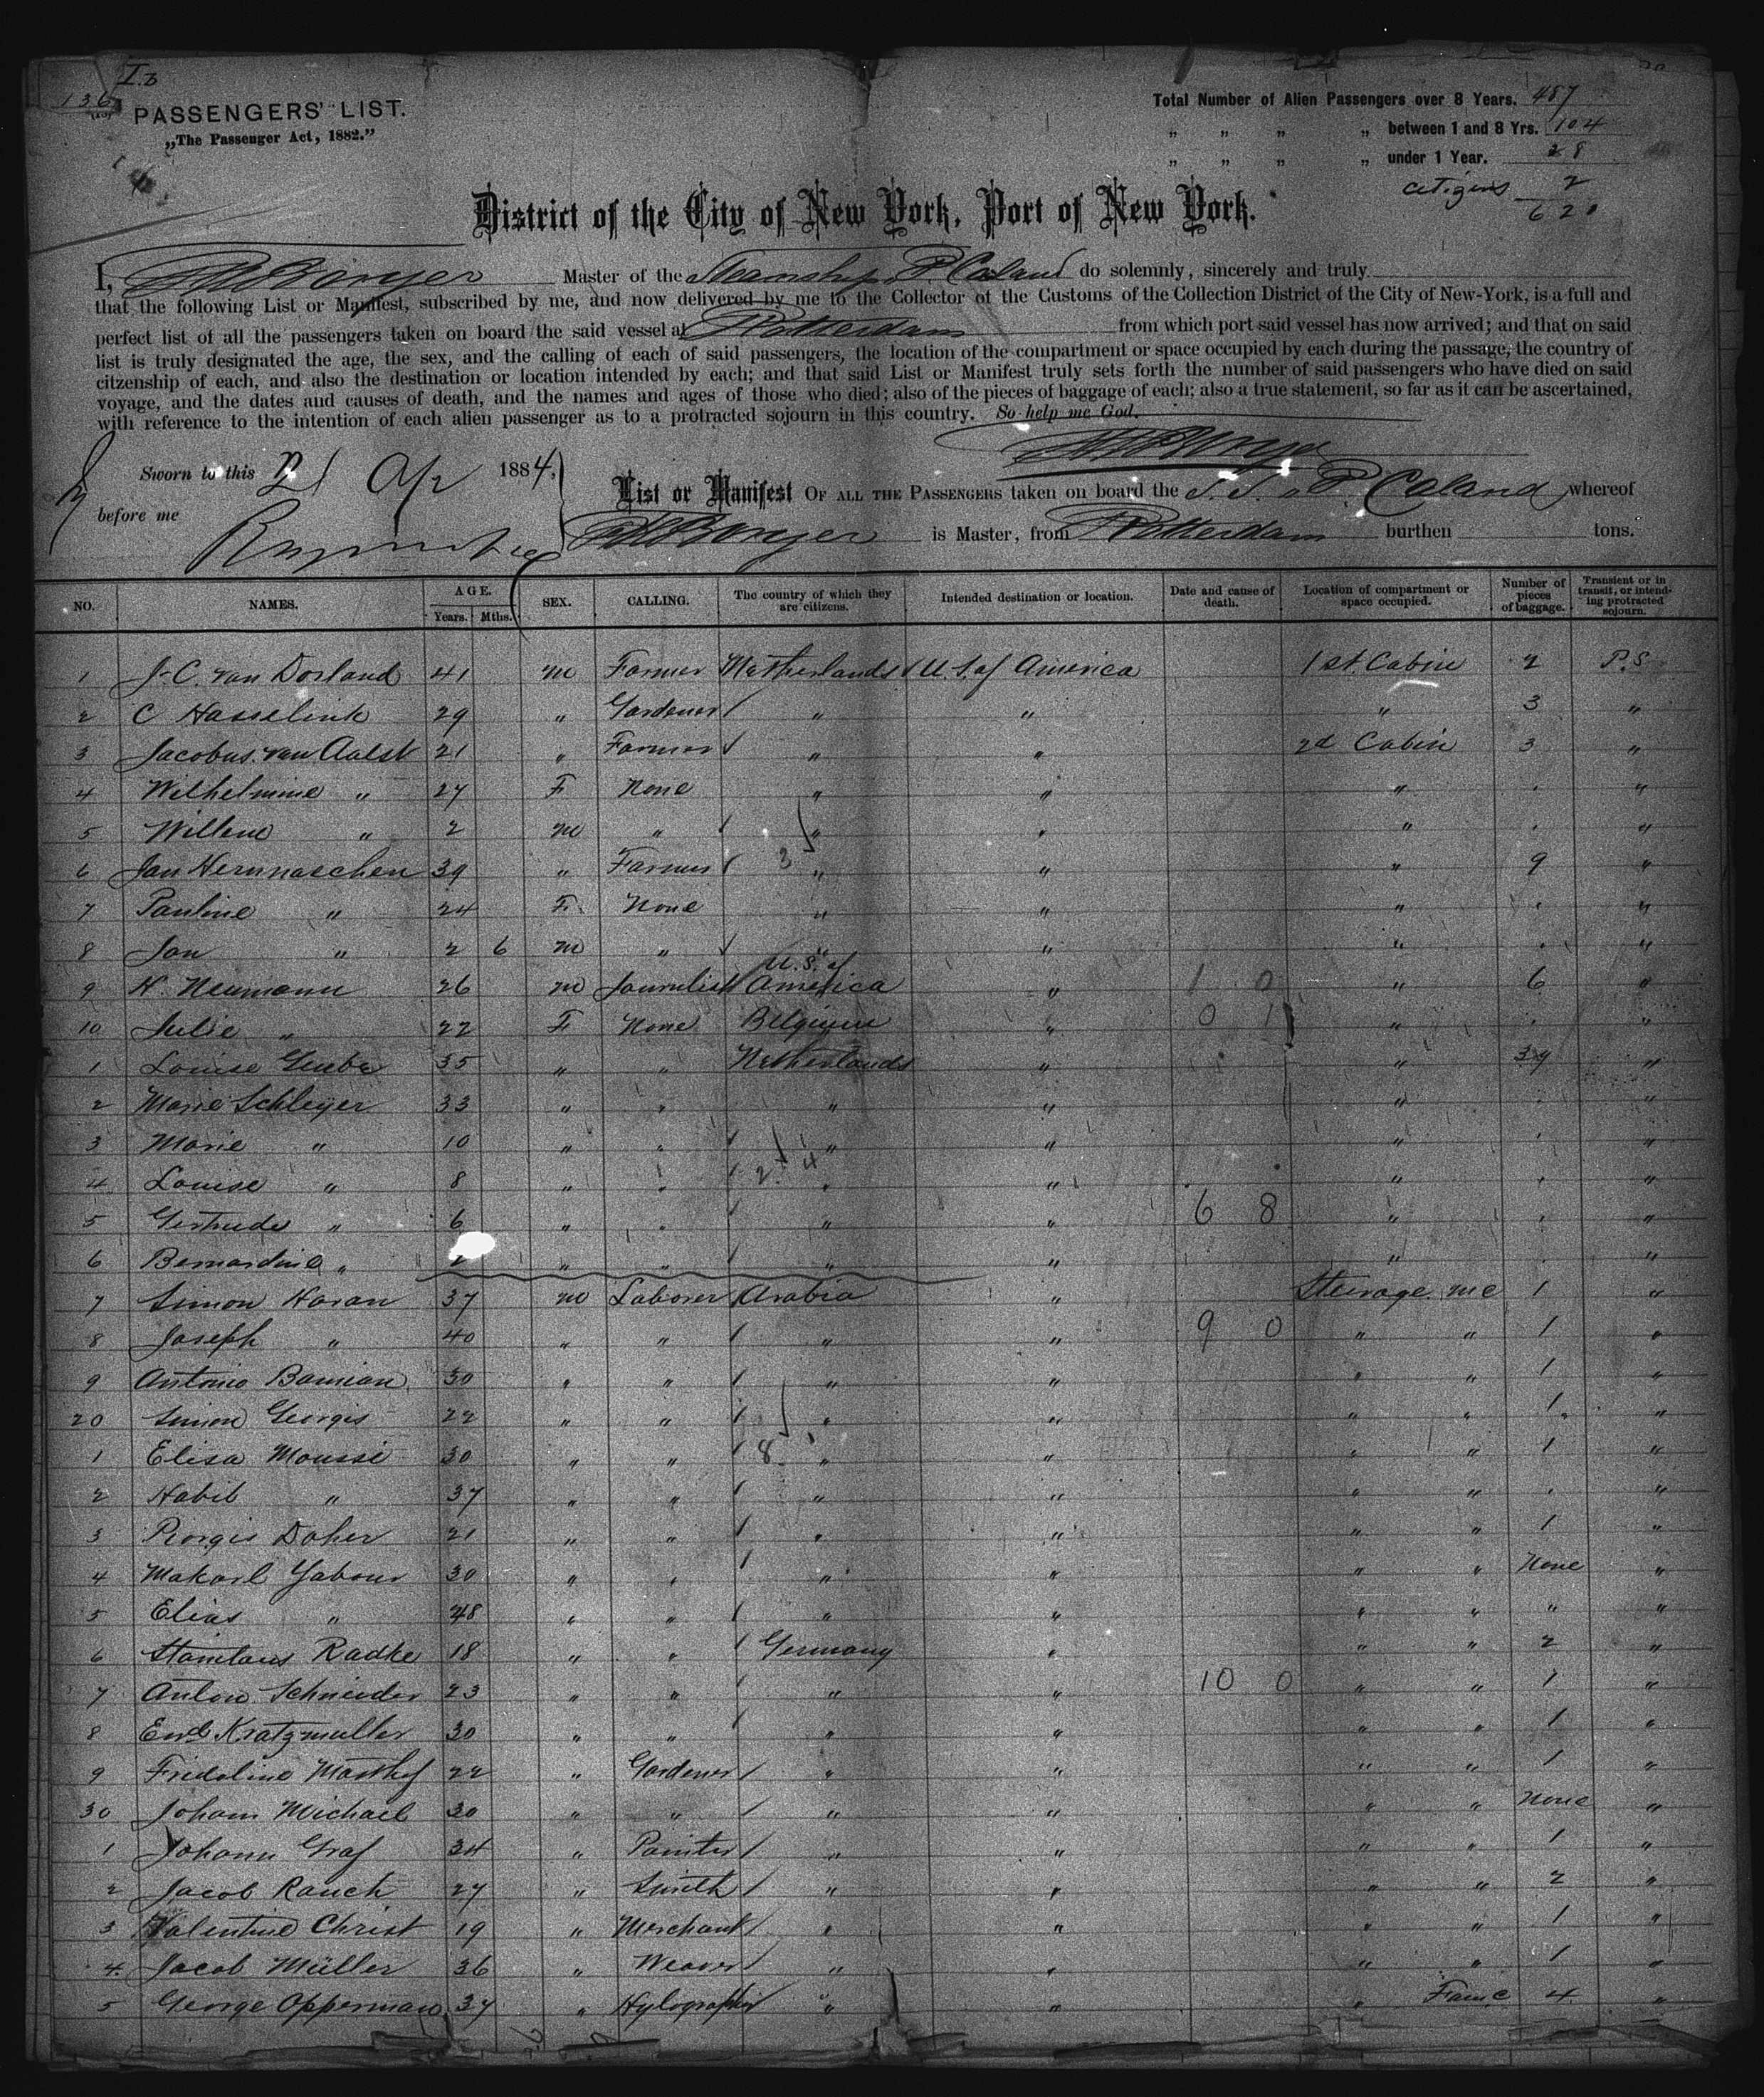 I.B
136
PASSENGERS' LIST.
„The Passenger Act, 1882.”
Total Number of Alien Passengers over 8 Years. 487
„ „ „ „ between 1 and 8 Yrs. 104
„ „ „ „ under 1 Year. 28
citizens 2
620
District of the City of New York, Port of New York.
I, Bonjer Master of the Steamship P. Caland do solemnly, sincerely and truly
that the following List or Manifest, subscribed by me, and now delivered by me to the Collector of the Customs of the Collection District of the City of New-York, is a full and
perfect list of all the passengers taken on board the said vessel at Rotterdam from which port said vessel has now arrived; and that on said
list is truly designated the age, the sex, and the calling of each of said passengers, the location of the compartment or space occupied by each during the passage, the country of
citzenship of each, and also the destination or location intended by each; and that said List or Manifest truly sets forth the number of said passengers who have died on said
voyage, and the dates and causes of death, and the names and ages of those who died; also of the pieces of baggage of each; also a true statement, so far as it can be ascertained,
with reference to the intention of each alien passenger as to a protracted sojourn in this country. So help me God.
Bonjer
Sworn to this 21 Apr 1884,
before me
List or Manifest OF ALL THE PASSENGERS taken on board the S. S. P. Caland whereof
Bonjer is Master, from Rotterdam burthen tons.
NO. NAMES. AGE. Years. Mths. SEX. CALLING. The country of which they are citizens. Intended destination or location. Date and cause of death. Location of compartment or space occupied. Number of pieces of baggage. Transient or in transit, or intending protracted sojourn.
1 J. C. van Dorland 41 m Farmer Netherlands U. S. of America 1st. Cabin 2 P.S
2 C Hasselink 29 „ Gardener „ „ „ 3 „
3 Jacobus van Aalst 21 „ Farmer „ „ 2d Cabin 3 „
4 Wilhelmine „ 27 F None „ „ „ „
5 Willem „ 2 m „ „ „ „ „
3
6 Jan Hermaschen 39 „ Farmer „ „ „ 9 „
7 Pauline „ 24 F. None „ „ „ „
8 Jan „ 2 6 m „ „ „ „ „
9 H. Neumann 26 m Journalist U. S. of America „ 1 0 „ 6 „
10 Julie „ 22 F None Belgium „ 0 1 „ „
1 Louise Grube 35 „ „ Netherlands „ „ 39 „
2 Marie Schleyer 33 „ „ „ „ „ „
3 Marie „ 10 „ „ „ „ „ „
2 4
4 Louise „ 8 „ „ „ „ „ „
5 Gertrude „ 6 „ „ „ „ 6 8 „ „
6 Bernardine „ „ „ „ „ „ „
7 Simon Havan 37 m Laborer Arabia „ Steerage mc 1 „
8 Joseph „ 40 „ „ „ „ 9 0 „ „ 1 „
9 Antonio Bamian 30 „ „ „ „ „ „ 1 „
20 Simon Georgis 22 „ „ „ „ „ „ 1 „
1 Elisa Moussi 30 „ „ 8 „ „ „ „ 1 „
2 Habib „ 37 „ „ „ „ „ „ „
3 Piorgis Daher 21 „ „ „ „ „ „ 1 „
4 Makarl Yabour 30 „ „ „ „ „ „ None „
5 Elias „ 48 „ „ „ „ „ „ „ „
6 Stanilaus Radke 18 „ „ Germany „ „ „ 2 „
7 Anton Schneider 23 „ „ „ „ 10 0 „ „ 1 „
8 Emil Kratzmuller 30 „ „ „ „ „ „ 1 „
9 Fridoline Masthof 22 „ Gardener „ „ „ „ 1 „
30 Joham Michael 30 „ „ „ „ „ „ None „
1 Johann Graf 34 „ Painter „ „ „ „ 1 „
2 Jacob Rauch 27 „ Smith „ „ „ „ 2 „
3 Valentine Christ 19 „ Merchant „ „ „ „ 1 „
4 Jacob Müller 36 „ Weaver „ „ „ „ 1 „
5 George Opperman 37 „ Hylographer „ „ „ Fam.c 4 „